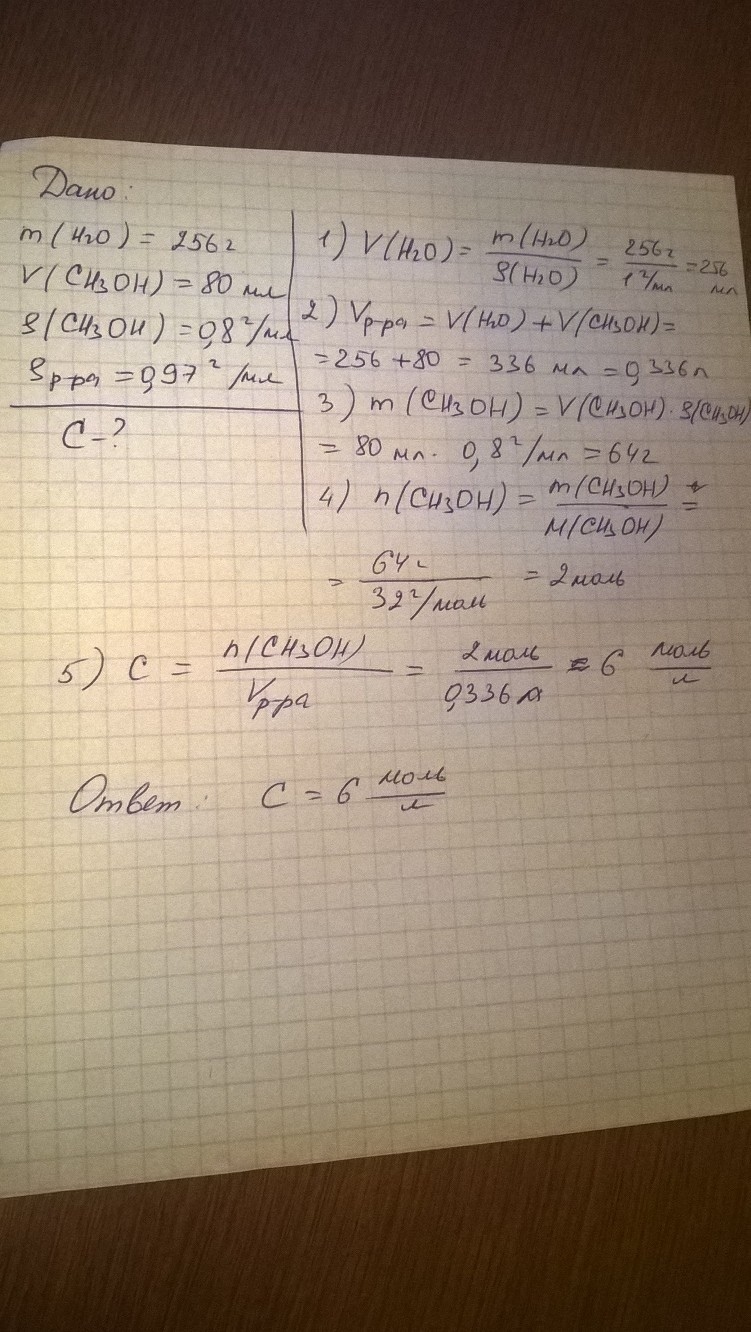 Дано:
m(H2O) = 256 г
V(CH3OH) = 80 мл
ρ(CH3OH) = 0,8 г/мл
ρр-ра = 0,97 г/мл
C - ?
1) V(H2O) = m(H2O) / ρ(H2O) = 256 г / 1 г/мл = 256 мл
2) Vр-ра = V(H2O) + V(CH3OH) =
= 256 + 80 = 336 мл = 0,336 л
3) m(CH3OH) = V(CH3OH) · ρ(CH3OH)
= 80 мл · 0,8 г/мл = 64 г
4) n(CH3OH) = m(CH3OH) / M(CH3OH) =
= 64 г / 32 г/моль = 2 моль
5) C = n(CH3OH) / Vр-ра = 2 моль / 0,336 л = 6 моль/л
Ответ: C = 6 моль/л